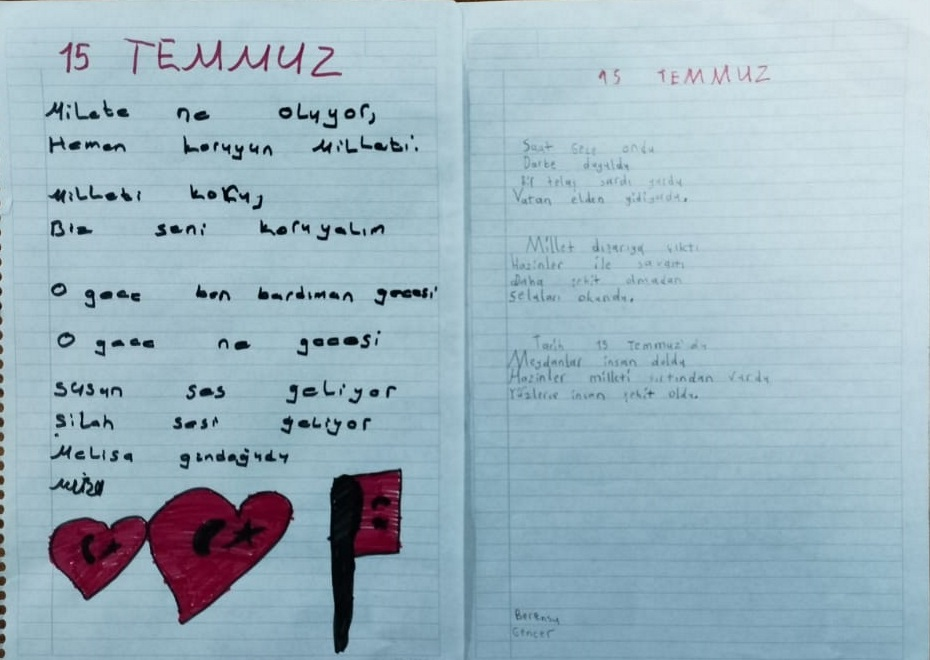 15 TEMMUZ
Milete ne oluyor,
Hemen koruyun Milleti.
Milleti koru,
Biz seni koruyalım
O gece bon bardıman gecesi
O gece ne gecesi
Susun ses geliyor
Silah sesi geliyor
Melisa gündoğudu
15 TEMMUZ
Saat gece ondu
Darbe duyuldu
Bir telaş sardı yurdu
Vatan elden gidiyordu.
Millet dışarıya çıktı
Hainler ile savaştı
Daha şehit olmadan
Selaları okundu.
Tarih 15 Temmuz'du
Meydanlar insan doldu
Hainler milleti sırtından vurdu
Yüzlerce insan şehit oldu.
Berensu
Gencer